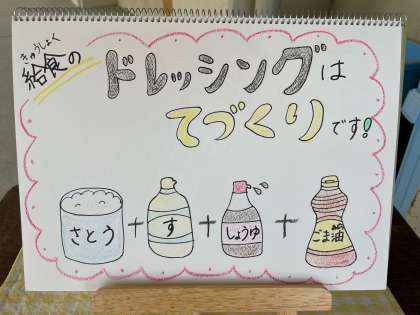 きゅうしょく
給食の
ドレッシングは
てづくりです!
さとう + す + しょうゆ + ごま油